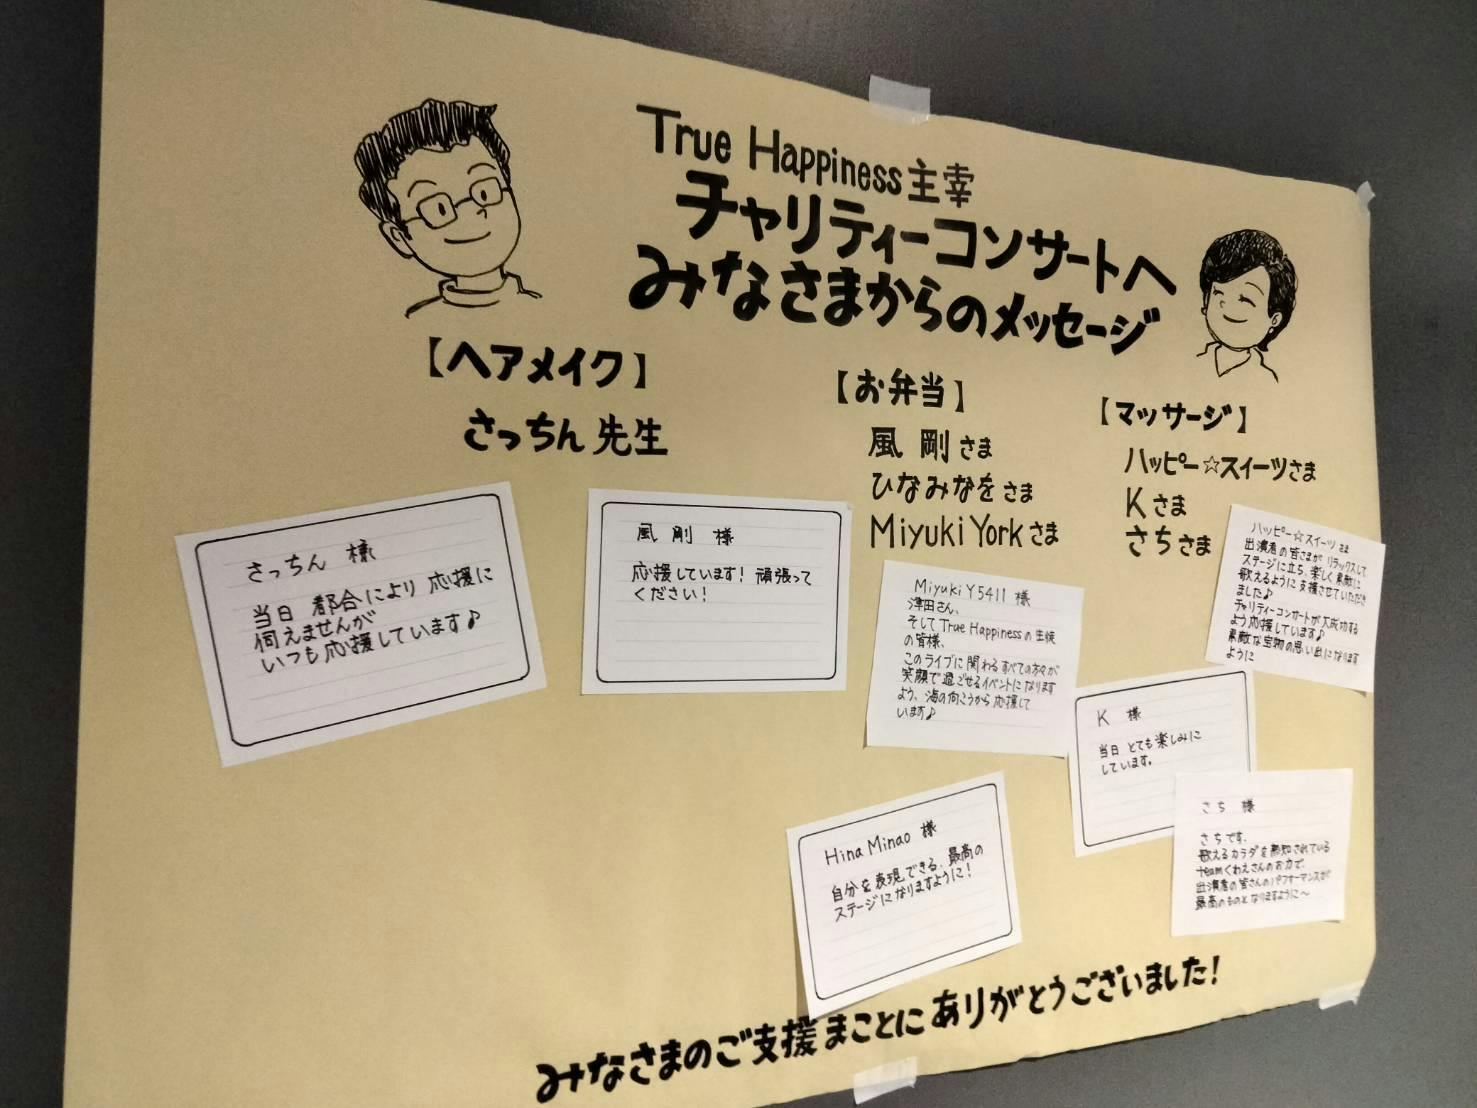 True Happiness主宰
チャリティーコンサートへ
みなさまからのメッセージ
【ヘアメイク】
さっちん先生
【お弁当】
風剛さま
ひなみなをさま
Miyuki Yorkさま
【マッサージ】
ハッピー☆スイーツさま
Kさま
さちさま
さっちん 様
当日 都合により 応援に
伺えませんが
いつも応援しています♪
風 剛 様
応援しています! 頑張って
ください!
Miyuki Y5411 様
津田さん、
そしてTrue Happinessの生徒
の皆様、
このライブに関わるすべての方々が
笑顔で過ごせるイベントになります
よう、海の向こうから応援して
います♪
ハッピー☆スイーツさま
出演者の皆さまがリラックスして
ステージに立ち、楽しく素敵に
歌えるように支援させていただき
ました♪
チャリティーコンサートが大成功する
よう応援しています♪
素敵な宝物の思い出になります
ように
K 様
当日 とても楽しみに
しています。
Hina Minao 様
自分を表現できる、最高の
ステージになりますように!
さち 様
さちです。
歌えるカラダを熟知されている
teamくわえさんのお力で、
出演者の皆さんのパフォーマンスが
最高のものとなりますように〜
みなさまのご支援まことにありがとうございました!